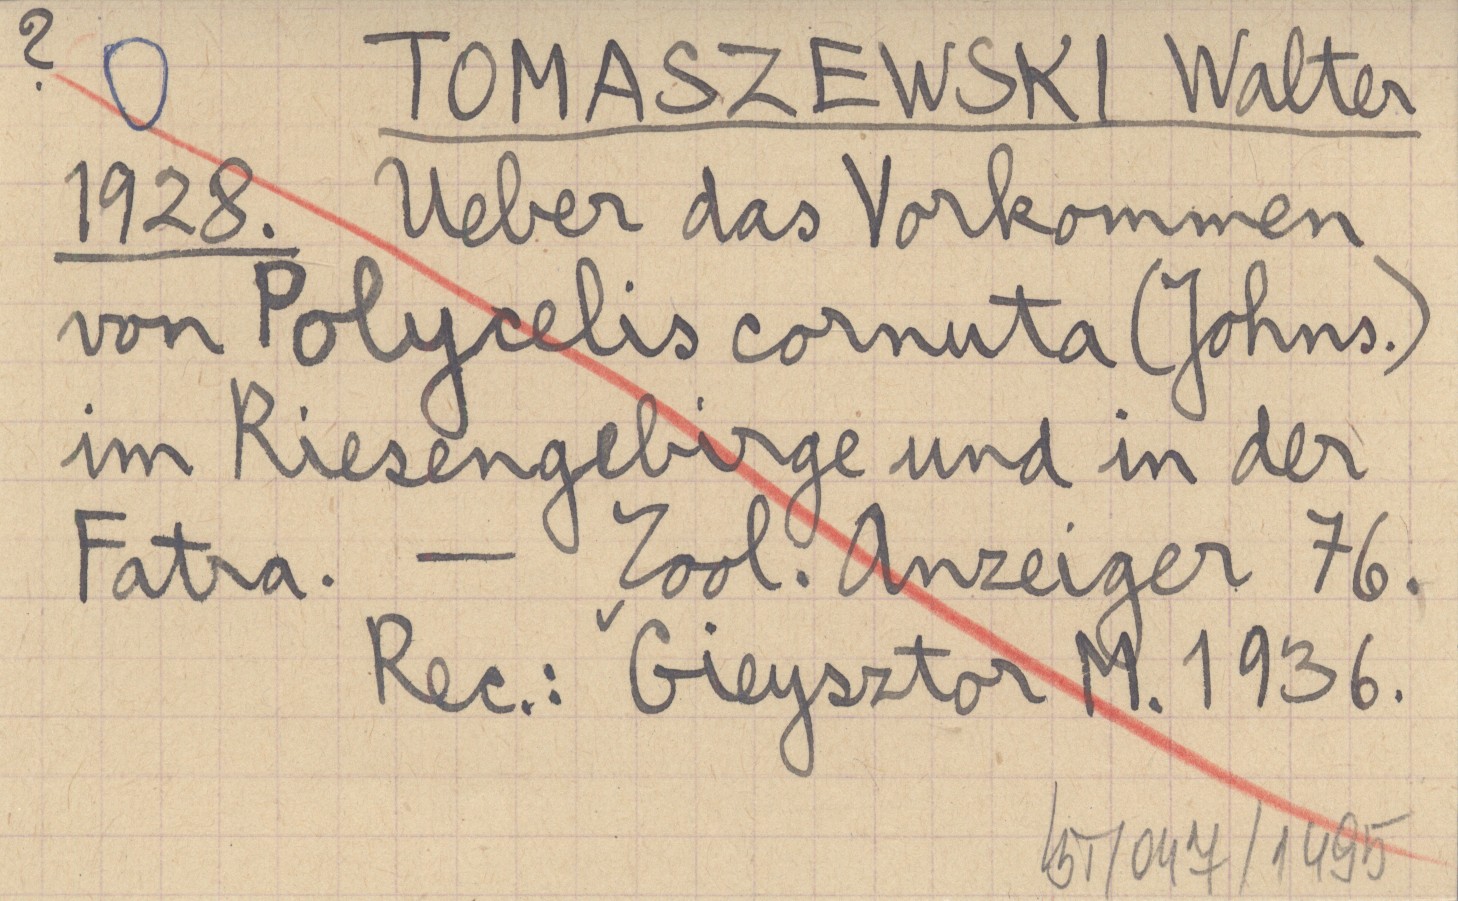 ? O TOMASZEWSKI Walter
1928. Ueber das Vorkommen
von Polycelis cornuta (Johns.)
im Riesengebirge und in der
Fatra. — Zool. Anzeiger 76.
Rec.: Gieysztor M. 1936.
/047/1495